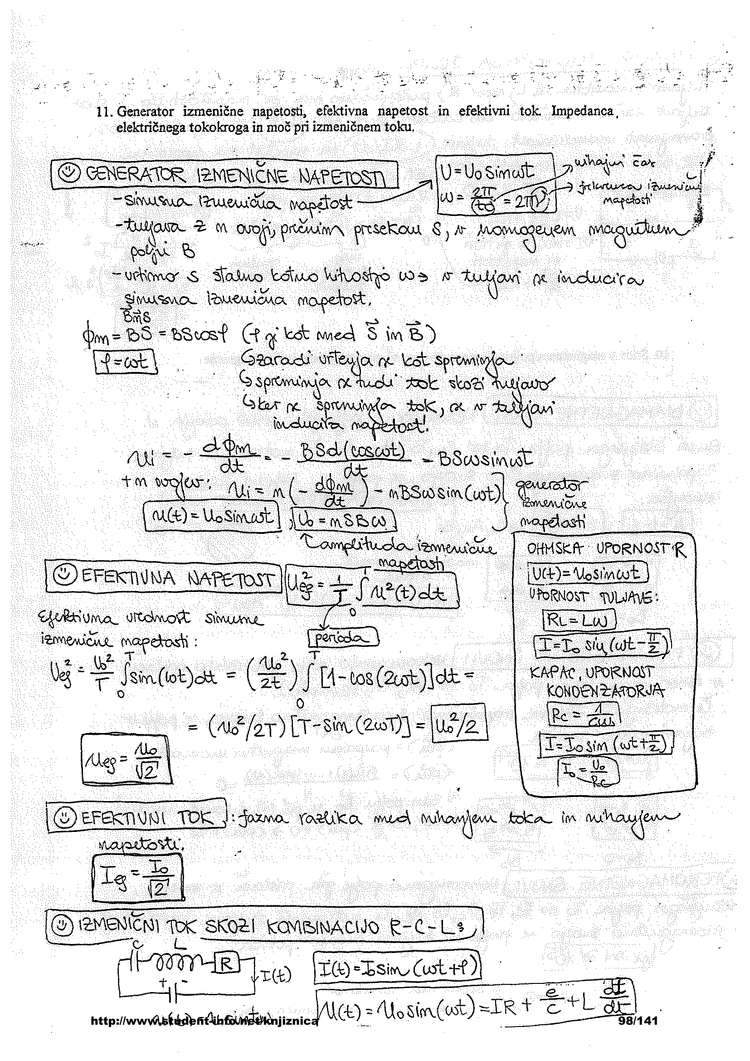 11. Generator izmenične napetosti, efektivna napetost in efektivni tok. Impedanca
električnega tokokroga in moč pri izmeničnem toku.
GENERATOR IZMENIČNE NAPETOSTI
U=U₀sinωt
ω = 2π/t₀ = 2πν
nihajni čas
frekvenca izmenične
napetosti
-sinusna izmenična napetost
-tuljava z n ovoji, prečnim presekom S, v homogenem magnetnem
polju B
-vrtimo s stalno kotno hitrostjo ω → v tuljavi se inducira
sinusna izmenična napetost.
ϕm = BS = BScosφ (φ je kot med S in B)
φ=ωt
↳zaradi vrtenja se kot spreminja
↳spreminja se tudi tok skozi tuljavo
↳ker se spreminja tok, se v tuljavi
inducira napetost!
Ui = - dϕm/dt = - BSd(cosωt)/dt = BSωsinωt
+n ovojev: Ui = n(- dϕm/dt) = nBSωsin(ωt)
generator
izmenične
napetosti
u(t)=U₀sinωt ; U₀=nSBω
amplituda izmenične
napetosti
EFEKTIVNA NAPETOST
Uef² = 1/T ∫₀ᵀ u²(t)dt
perioda
Efektivna vrednost sinusne
izmenične napetosti:
Uef² = U₀²/T ∫₀ᵀ sin(ωt)dt = (U₀²/2t) ∫₀ᵀ [1-cos(2ωt)]dt =
= (U₀²/2T)[T-sin(2ωT)] = U₀²/2
Uef = U₀/√2
OHMSKA UPORNOST R
U(t)=U₀sinωt
UPORNOST TULJAVE:
RL=Lω
I=I₀ sin(ωt-π/2)
KAPAC. UPORNOST
KONDENZATORJA
Rc = 1/Cω
I=I₀sin(ωt+π/2)
I₀ = U₀/Rc
EFEKTIVNI TOK : fazna razlika med nihanjem toka in nihanjem
napetosti.
Ief = I₀/√2
IZMENIČNI TOK SKOZI KOMBINACIJO R-C-L:
C L R I(t)
+ -
I(t)=I₀sin(ωt+φ)
U(t)=U₀sin(ωt)=IR + e/c + L dI/dt
http://www.student-info.net/knjiznica 98/141